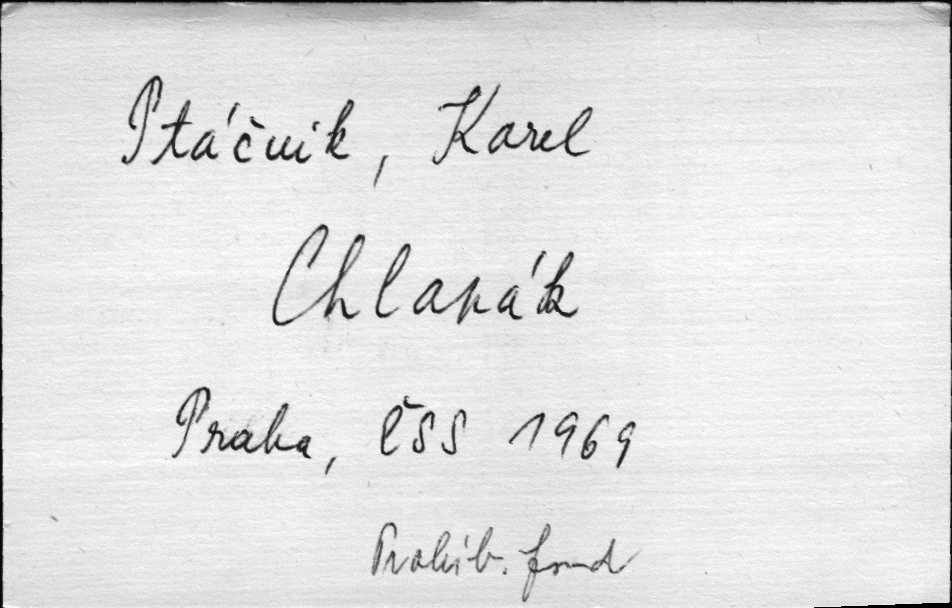 Ptáčník, Karel
Chlapák
Praha, ČSS 1969
Prohib. fond